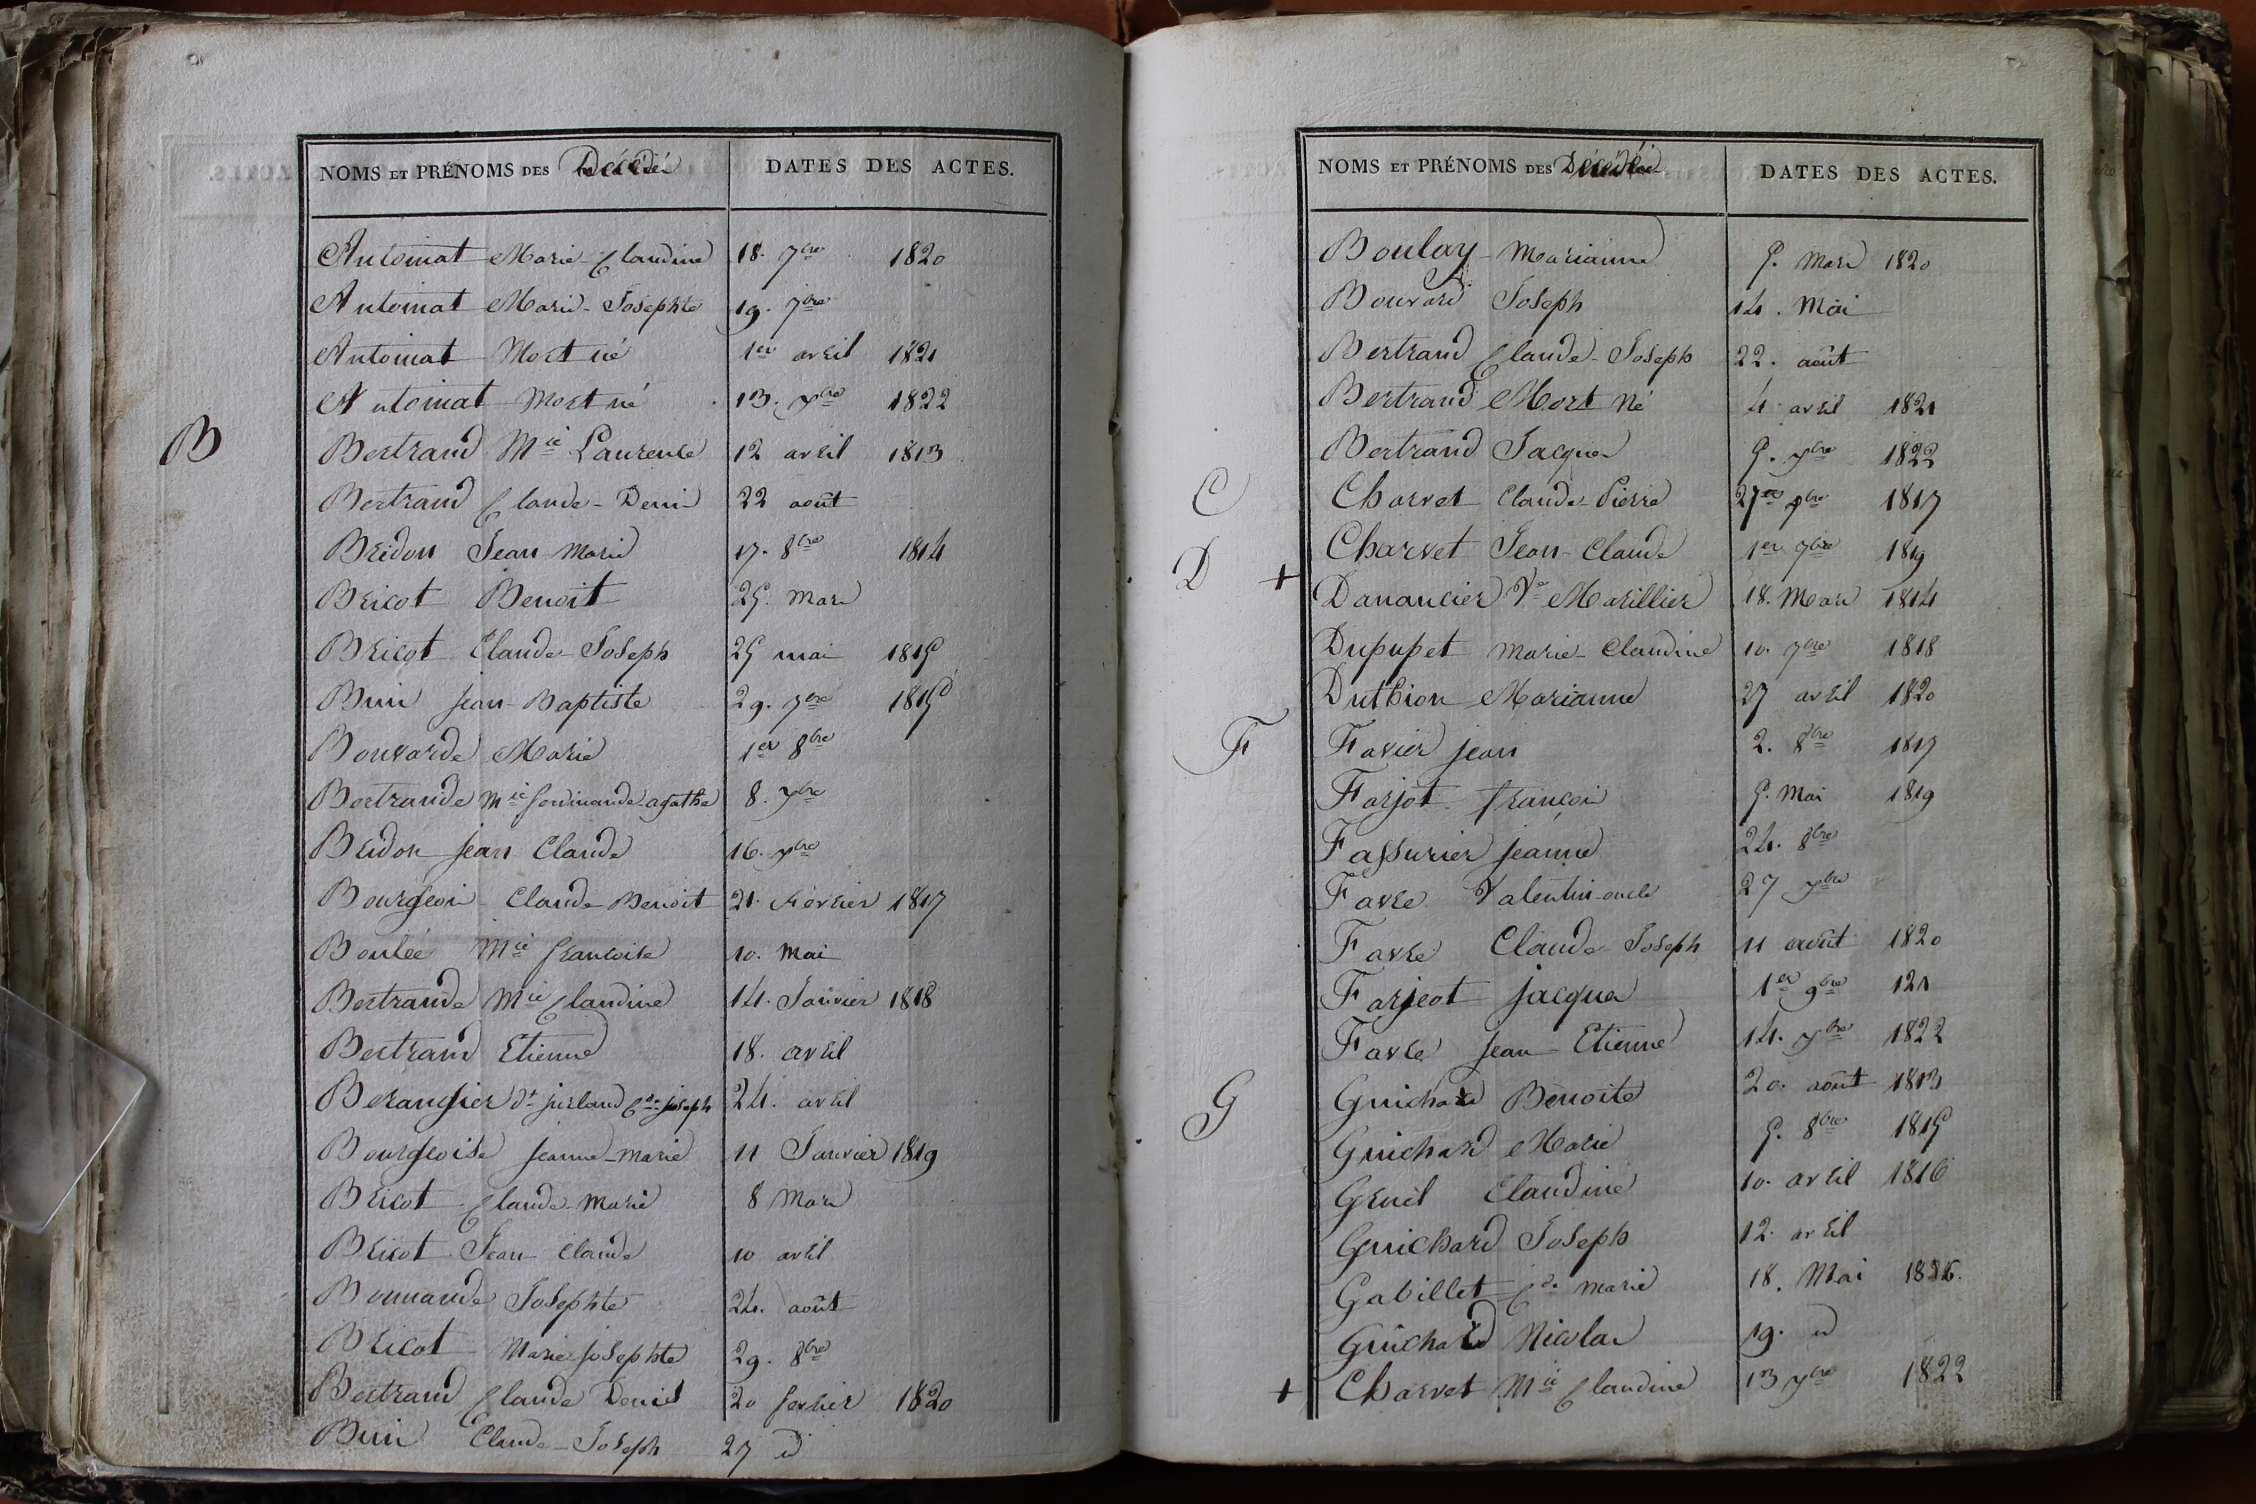 NOMS ET PRÉNOMS DES Décédés DATES DES ACTES.
Antoinat Marie Claudine 18. 7bre 1820
Antoinat Marie-Josephte 19. 7bre
Antoinat Mort né 1er avril 1821
Antoinat Mort né 13. Xbre 1822
B
Bertrand Mie Laurence 12 avril 1813
Bertrand Claude-Denis 22 août
Bridon Jean Marie 17. 8bre 1814
Bricot Benoit 25. Mars
Bricot Claude-Joseph 25 mai 1815
Buin jean-Baptiste 29. 7bre 1815
Bouvarde Marie 1er 8bre
Bertrande Mie ferdinande agathe 8. Xbre
Bridon jean Claude 16. Xbre
Bourgeois Claude Benoit 21. Février 1817
Boulée Mie françoise 10. Mai
Bertrande Mie Claudine 14. Janvier 1818
Bertrand Etienne 18. avril
Berangier dt Cde joseph 24. avril
Bourgeoise jeanne-marie 11 Janvier 1819
Bricot Claude-Marie 8 Mars
Bricot Jean Claude 10 avril
Bonnande Josephte 24. août
Bricot Marie josephte 29. 8bre
Bertrand Claude Denis 20 fevrier 1820
Buin Claude-Joseph 27 id
NOMS ET PRÉNOMS DES Décédés DATES DES ACTES.
Boulay Marianne 5. Mars 1820
Bouvard Joseph 14. Mai
Bertrand Claude-Joseph 22. août
Bertrand Mort Né 4 avril 1821
Bertrand Jacques 5. Xbre 1822
C
Charvet Claude-Pierre 1817
Charvet Jean-Claude 1er 7bre 1819
D + Danancier Ve Marillier 18. Mars 1814
Dupupet Marie-Claudine 10. 7bre 1818
Duthion Marianne 27 avril 1820
F
Favier jean 2. 8bre 1817
Farjot françois 5. Mai 1819
Fassurier jeanne 24. 8bre
Favre Valentin-oncle 27 Xbre
Favre Claude Joseph 11 août 1820
Farjeot jacques 1er 9bre 121
Favre jean Etienne 14. Xbre 1822
G
Guichard Benoite 20. août 1813
Guichard Marie 5. 8bre 1815
Gruel Claudine 10. avril 1816
Guichard Joseph 12. avril
Gabillet Cde marie 18. Mai 1816.
Guichard Nicolas 19. id
+ Charvet Mie Claudine 13 Xbre 1822